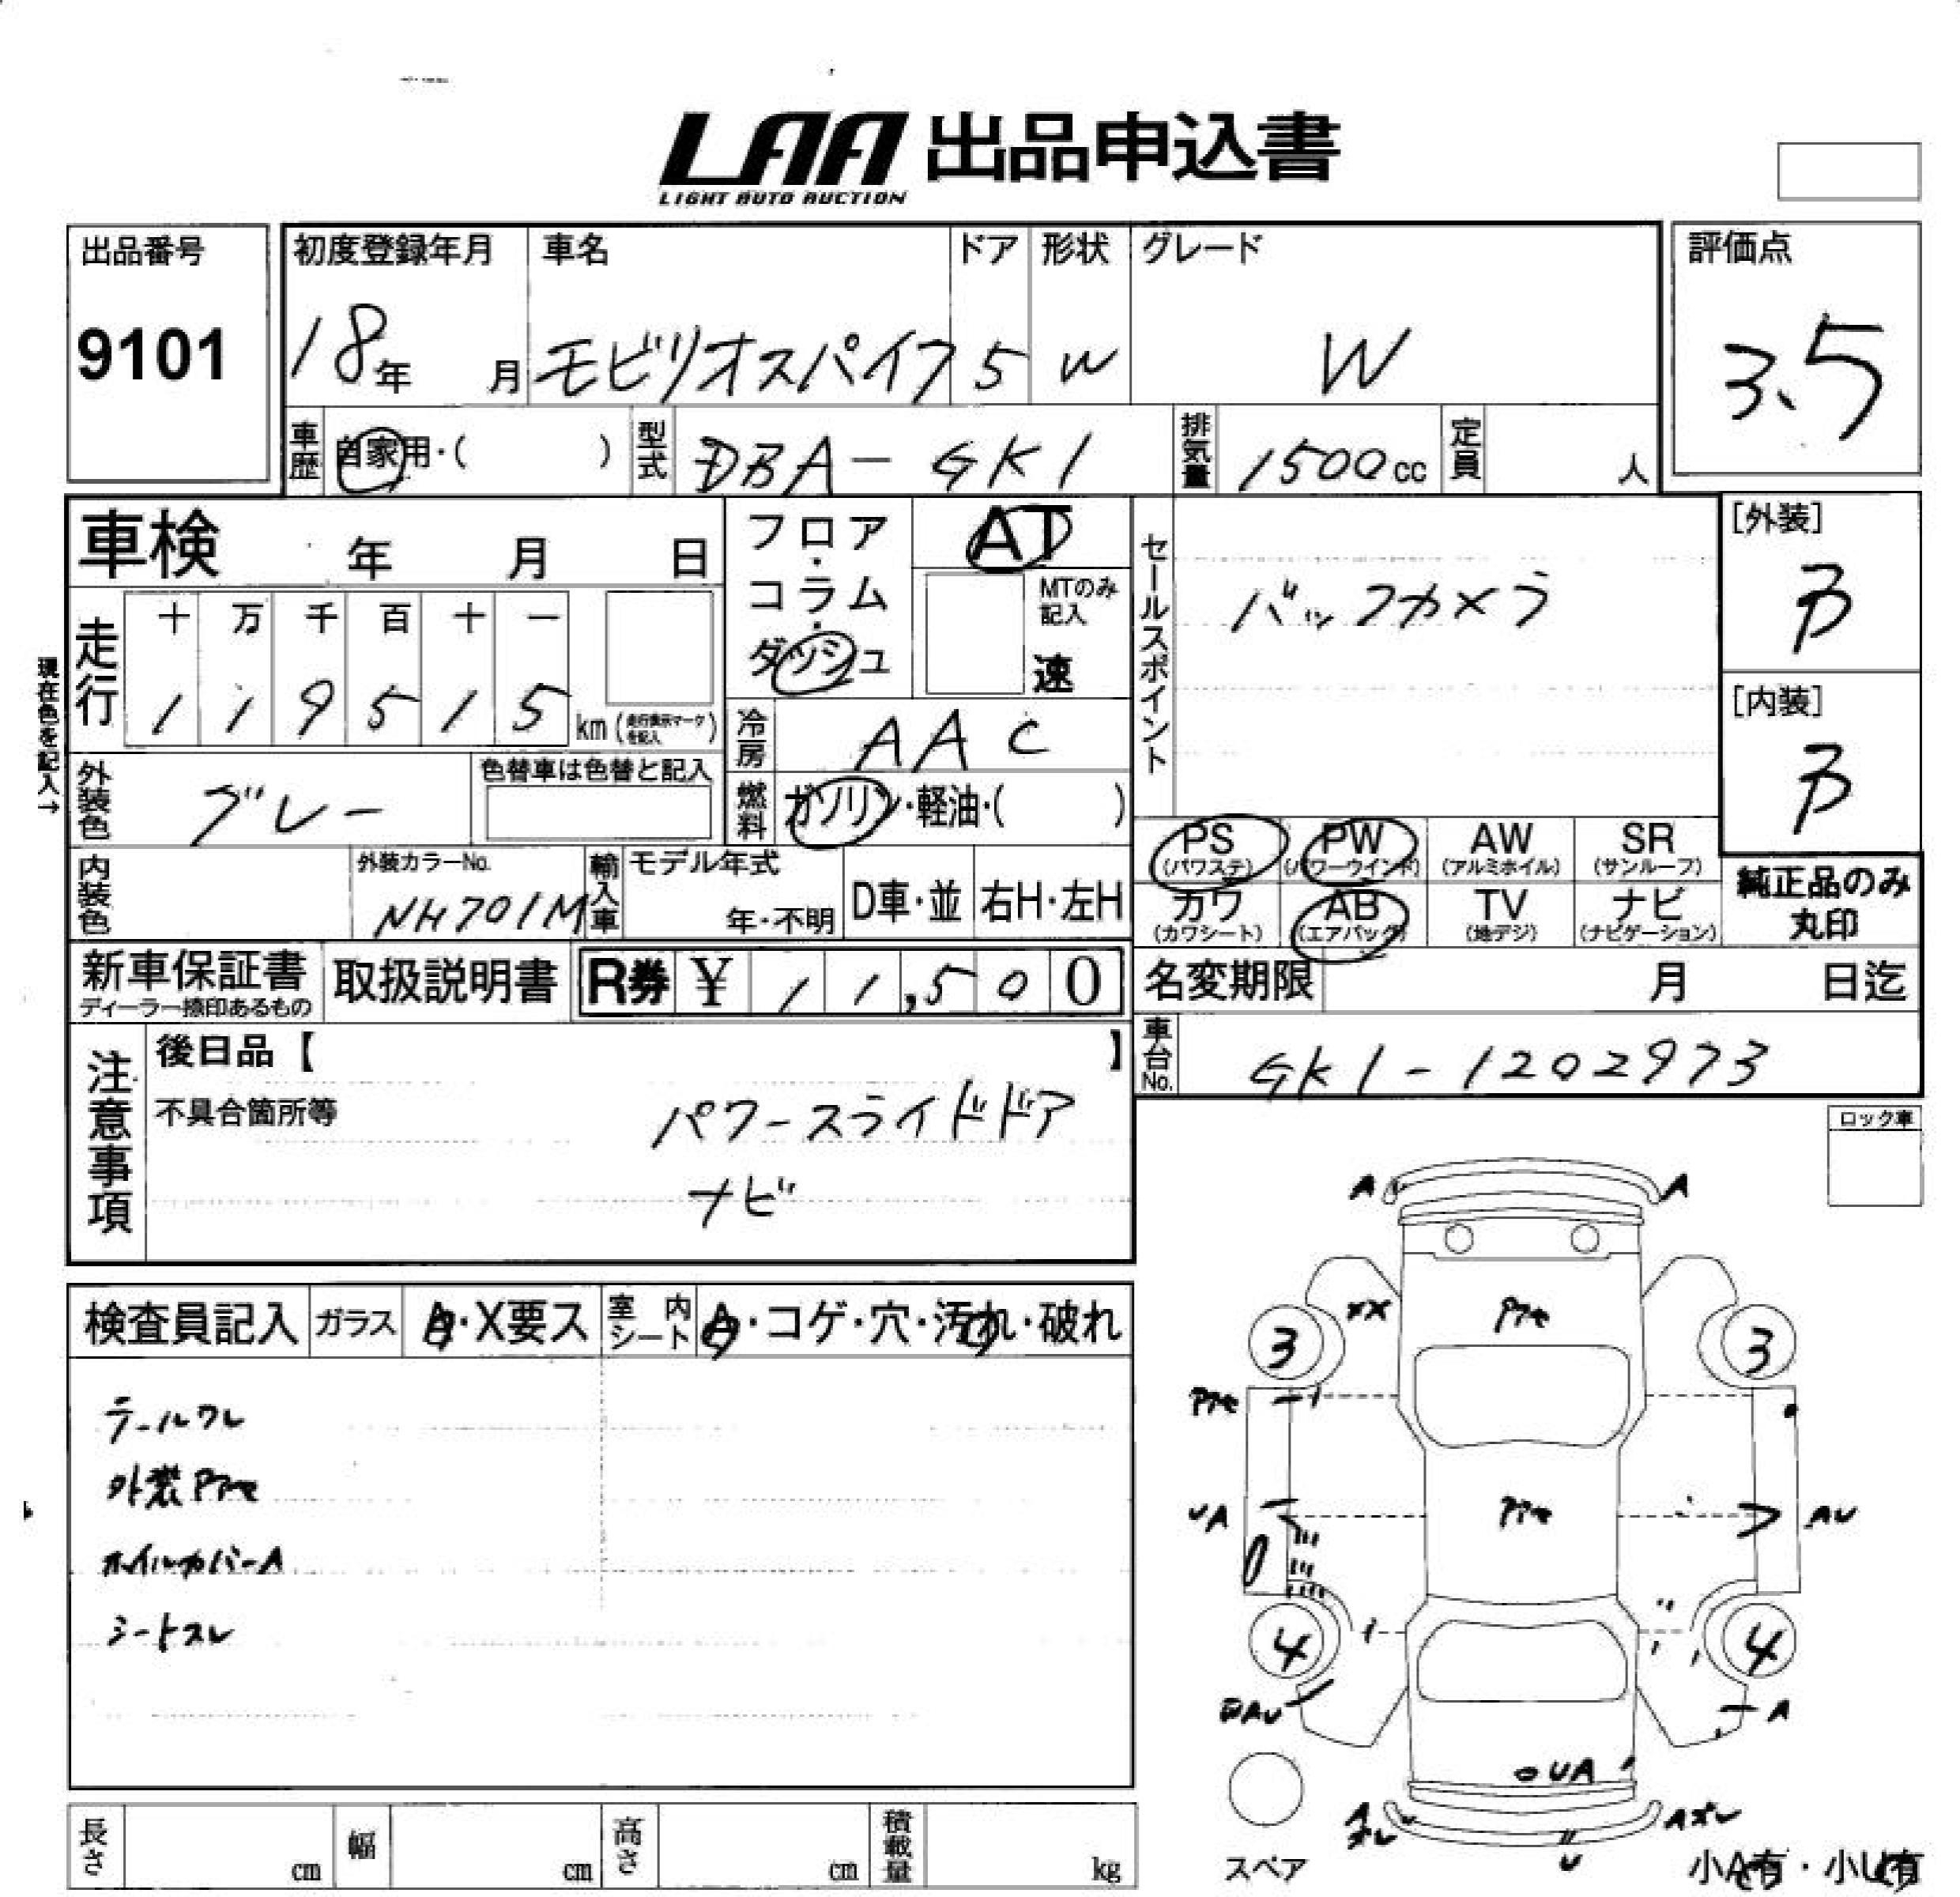 LAA 出品申込書
LIGHT AUTO AUCTION
出品番号
9101
初度登録年月
18年 月
車名
モビリオスパイク
ドア
5
形状
W
グレード
W
評価点
3.5
車歴 自家用・( )
型式 DBA-GK1
排気量 1500cc
定員 人
車検 年 月 日
フロア・コラム・ダッシュ
AT
MTのみ記入
速
セールスポイント
バックカメラ
[外装]
[内装]
現在色を記入→
走行
十 万 千 百 十 一
1 1 9 5 1 5 km (走行表示マークを記入)
冷房 AAC
外装色 グレー
色替車は色替と記入
燃料 ガソリン・軽油・( )
内装色
外装カラーNo.
NH701M
輸入車
モデル年式
年・不明
D車・並
右H・左H
PS (パワステ)
PW (パワーウインド)
AW (アルミホイル)
SR (サンルーフ)
カワ (カワシート)
AB (エアバック)
TV (地デジ)
ナビ (ナビゲーション)
純正品のみ
丸印
新車保証書
ディーラー捺印あるもの
取扱説明書
R券 ¥ 11,500
名変期限 月 日迄
車台No. GK1-1202973
注意事項
後日品【 】
不具合箇所等
パワースライドドア
ナビ
ロック車
検査員記入
ガラス
A・X要ス
室内シート
A・コゲ・穴・汚れ・破れ
テールワレ
外装Pアセ
ホイルカバーA
シートスレ
A A
XX Pアセ
3 3
Pアセ
UA Pアセ AU
4 4
A
UA
A ズレ
U
Aズレ
スペア
小A有・小U有
長さ cm
幅 cm
高さ cm
積載量 kg